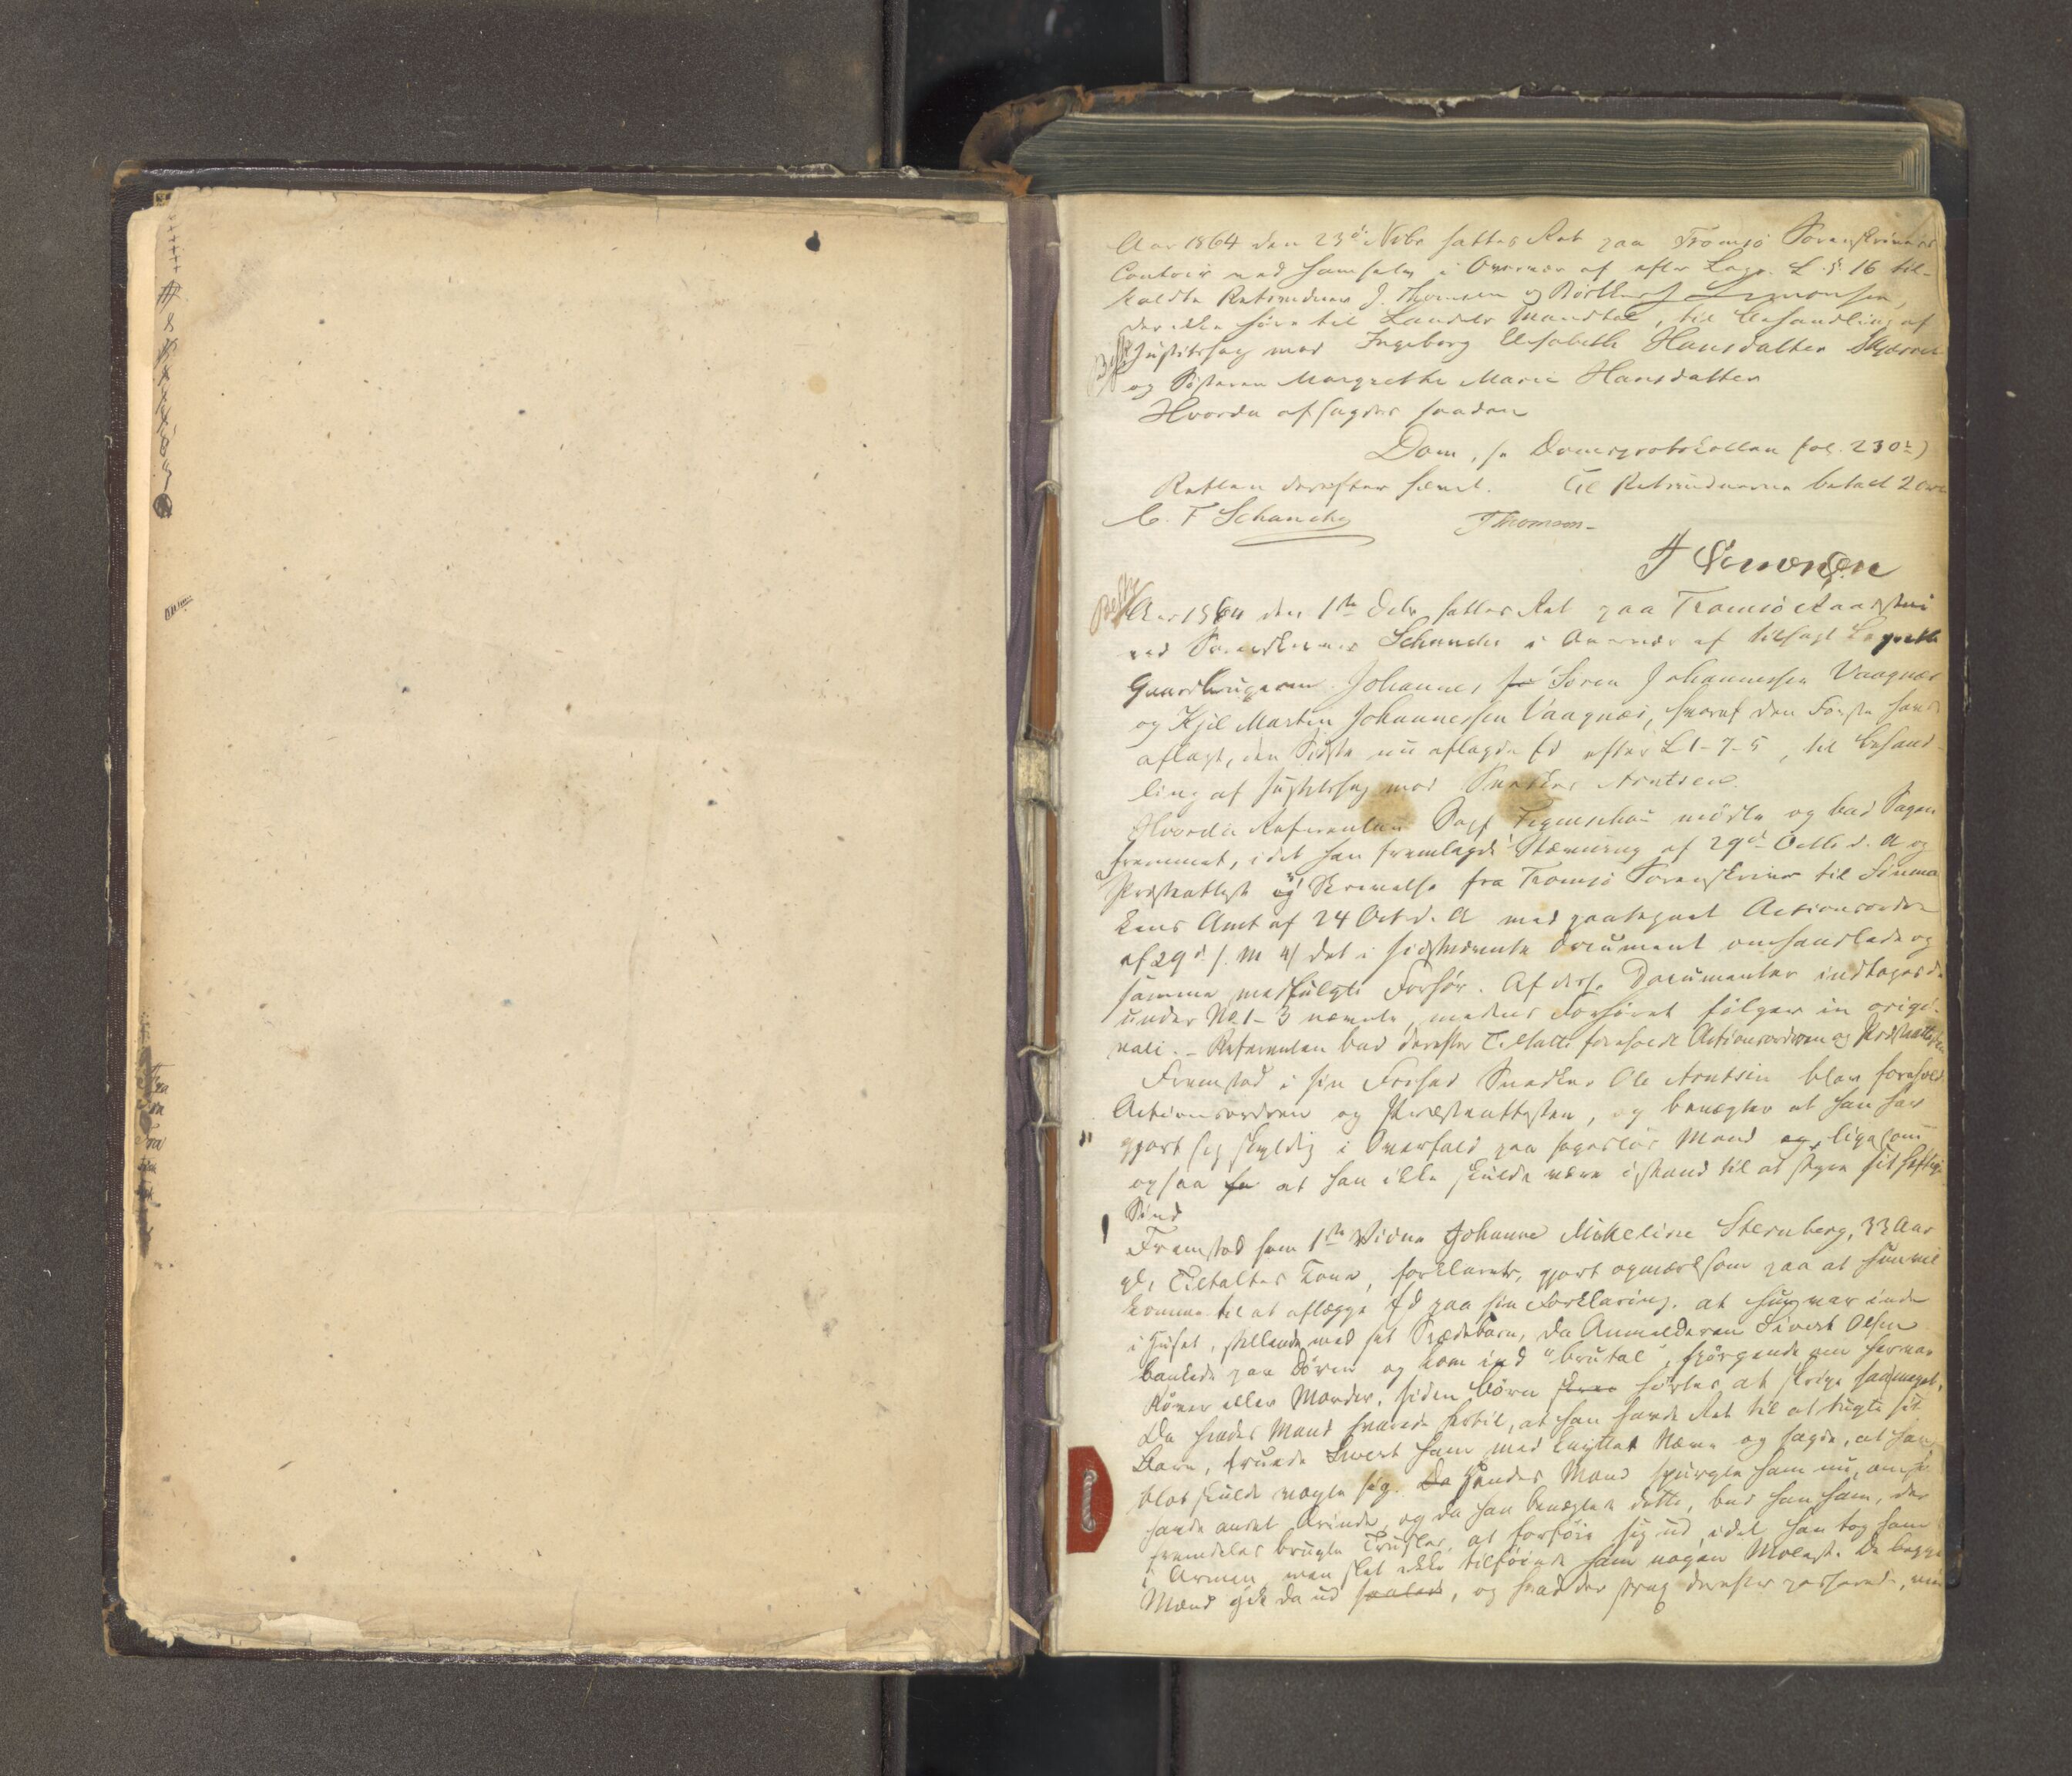 Aar 1864 den 23d Novbr sattes Ret paa Tromsö Sorenskriveri
Contoir med samsalen i Overvær af efter Lagr. L. § 16 til-
kaldte Retsvidner J. Thomsen og J Simonsen,
der ikke høre til Landets Mandtal, til Behandling af
Justitssag mod Ingeborg Elisabeth Hansdatter
og Søsteren Margrethe Marie Hansdatter
Hvorda afsagdes saadan
Dom, se Domsprotokollen fol. 230
Retten derefter hævet. Til Retsvidnerne betalt
C. F Schanche Thomsen
J Simonsen
Besk
Aar 1864 den 1ste Debr sattes Ret paa Tromsö Raadstue
ved Sorenskriver Schanche i Overvær af tilsagt Lagrette
Gaardbrugeren Johannes Soren Johannessen Vaagnæs
og Kjil Martin Johannessen Vaagnæs, hvoraf den Første havde
aflagt, den Sidste nu aflagde Ed efter L 1-7-5, til Behand-
ling af Justitssag mod Snedker Arntsen.
Hvorda Referenten Sagf Figenschau mødte og bad Sagen
fremmet, idet han fremlagde Stævning af 29d Octb d. A og
Præsteattest og Skrivelse fra Tromsö Sorenskriver til Finmar
kens Amt af 24 Oct d. A med paategnet Actionsorden
af 29d s. M det i sidstnævnte Document omhandlede og
samme medfulgte Forhör. Af disse Documenter indtages de
under No 1-3 nævnte, medens Forhöret fölger in origi-
nali. - Referenten bad derefter Tiltalte foreholdt Actionsordren og Præsteattesten
Fremstod i sin Frihed Snedker Ole Arntsen blev foreholdt
Actionsordren og Præsteattesten, og benægter at han har
gjort sig skyldig i Overfald paa sagesløs Mand og, ligesom
ogsaa at han ikke skulde være istand til at styre sit heftige
Sind
Fremstod som 1ste Vidne Johanne Mikeline Sternberg, 33 Aar
gl, Tiltaltes Kone, forklarede, gjort opmærksom paa at hun vil
komme til at aflægge Ed paa sin Forklaring. at hun var inde
i Huset, stellende med sit Spædebarn, da Anmelderen Sivert Olsen
bankede paa Dören og kom ind "brutal", spörgende om her var
Röver eller Morder, siden Börn hörtes at skrige saa meget.
Da hendes Mand svarede hertil, at han havde Ret til at tugte sit
Barn, truede Sivert ham med knyttet Næve og sagde, at han
blot skulde vogte sig. Da Hendes Mand spurgte ham nu, om han
havde andet Ærinde, og da han benægtede dette, bad han ham, der
fremdeles brugte Trusler, at forföie sig ud, idet han tog ham
i Armen men slet ikke tilföiede ham nogen Molest. De begge
Mænd gik da ud, og hvad der strax derefter passerede,